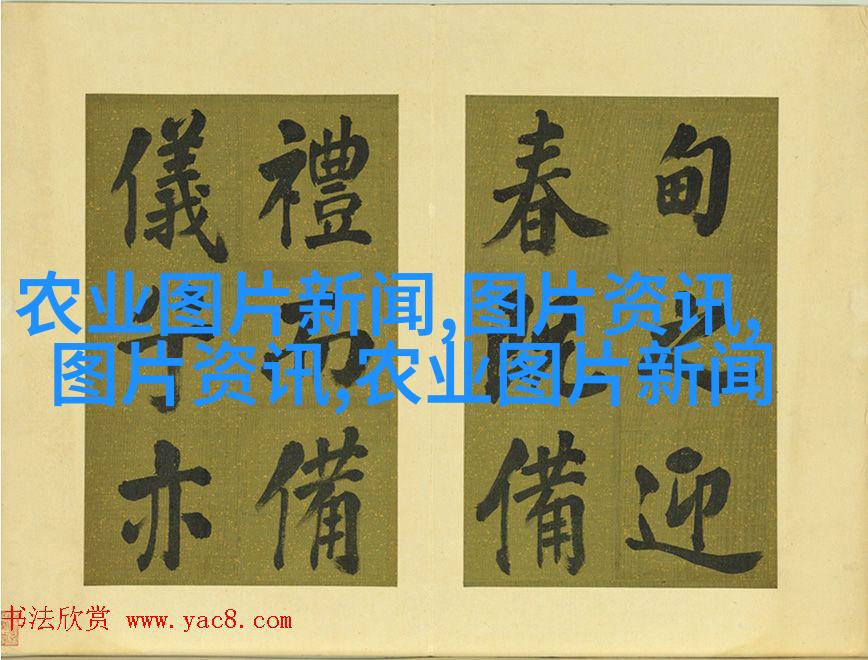 甸之迎
春備
禮備
儀亦
农业图片新闻,图片资讯,
图片资讯,农业图片新闻
书法欣赏 www.yac8.com